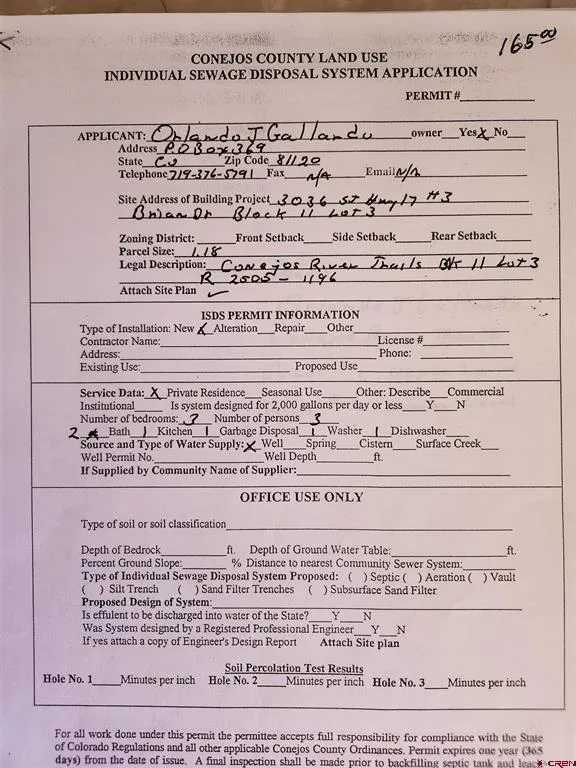 165.00
CONEJOS COUNTY LAND USE
INDIVIDUAL SEWAGE DISPOSAL SYSTEM APPLICATION
PERMIT #__________
APPLICANT: Orlando J Gallando owner Yes X No___
Address P.O Box 369
State CO Zip Code 81120
Telephone 719-376-5791 Fax N/A Email N/A
Site Address of Building Project 3036 St Hwy 17 #3
Brian Dr Block 11 Lot 3
Zoning District:____ Front Setback____ Side Setback____ Rear Setback____
Parcel Size: 1.18
Legal Description: Conejos River Trails Bk 11 Lot 3
R 2505-1196
Attach Site Plan ✓
ISDS PERMIT INFORMATION
Type of Installation: New X Alteration___ Repair___ Other___
Contractor Name:__________ License #__________
Address:__________ Phone:__________
Existing Use:__________ Proposed Use__________
Service Data: X Private Residence___ Seasonal Use___ Other: Describe___ Commercial
Institutional____ Is system designed for 2,000 gallons per day or less____Y___N
Number of bedrooms: 3 Number of persons 3
2 Bath 1 Kitchen 1 Garbage Disposal 1 Washer 1 Dishwasher___
Source and Type of Water Supply: X Well___ Spring___ Cistern___ Surface Creek___
Well Permit No.__________ Well Depth__________ft.
If Supplied by Community Name of Supplier:__________
OFFICE USE ONLY
Type of soil or soil classification__________
Depth of Bedrock__________ft. Depth of Ground Water Table:__________ft.
Percent Ground Slope:________ % Distance to nearest Community Sewer System:________
Type of Individual Sewage Disposal System Proposed: ( ) Septic ( ) Aeration ( ) Vault
( ) Silt Trench ( ) Sand Filter Trenches ( ) Subsurface Sand Filter
Proposed Design of System:__________
Is effulent to be discharged into water of the State?____Y____N
Was System designed by a Registered Professional Engineer___Y___N
If yes attach a copy of Engineer's Design Report Attach Site plan
Soil Percolation Test Results
Hole No. 1_____Minutes per inch Hole No. 2____Minutes per inch Hole No. 3____Minutes per inch
For all work done under this permit the permittee accepts full responsibility for compliance with the State
of Colorado Regulations and all other applicable Conejos County Ordinances. Permit expires one year (365
days) from the date of issue. A final inspection shall be made prior to backfilling septic tank and
CREN